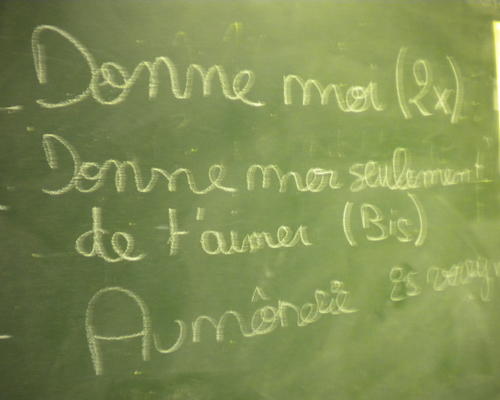 Donne moi (2x)
Donne moi seulement
de t'aimer (Bis)
Aumônerie Es